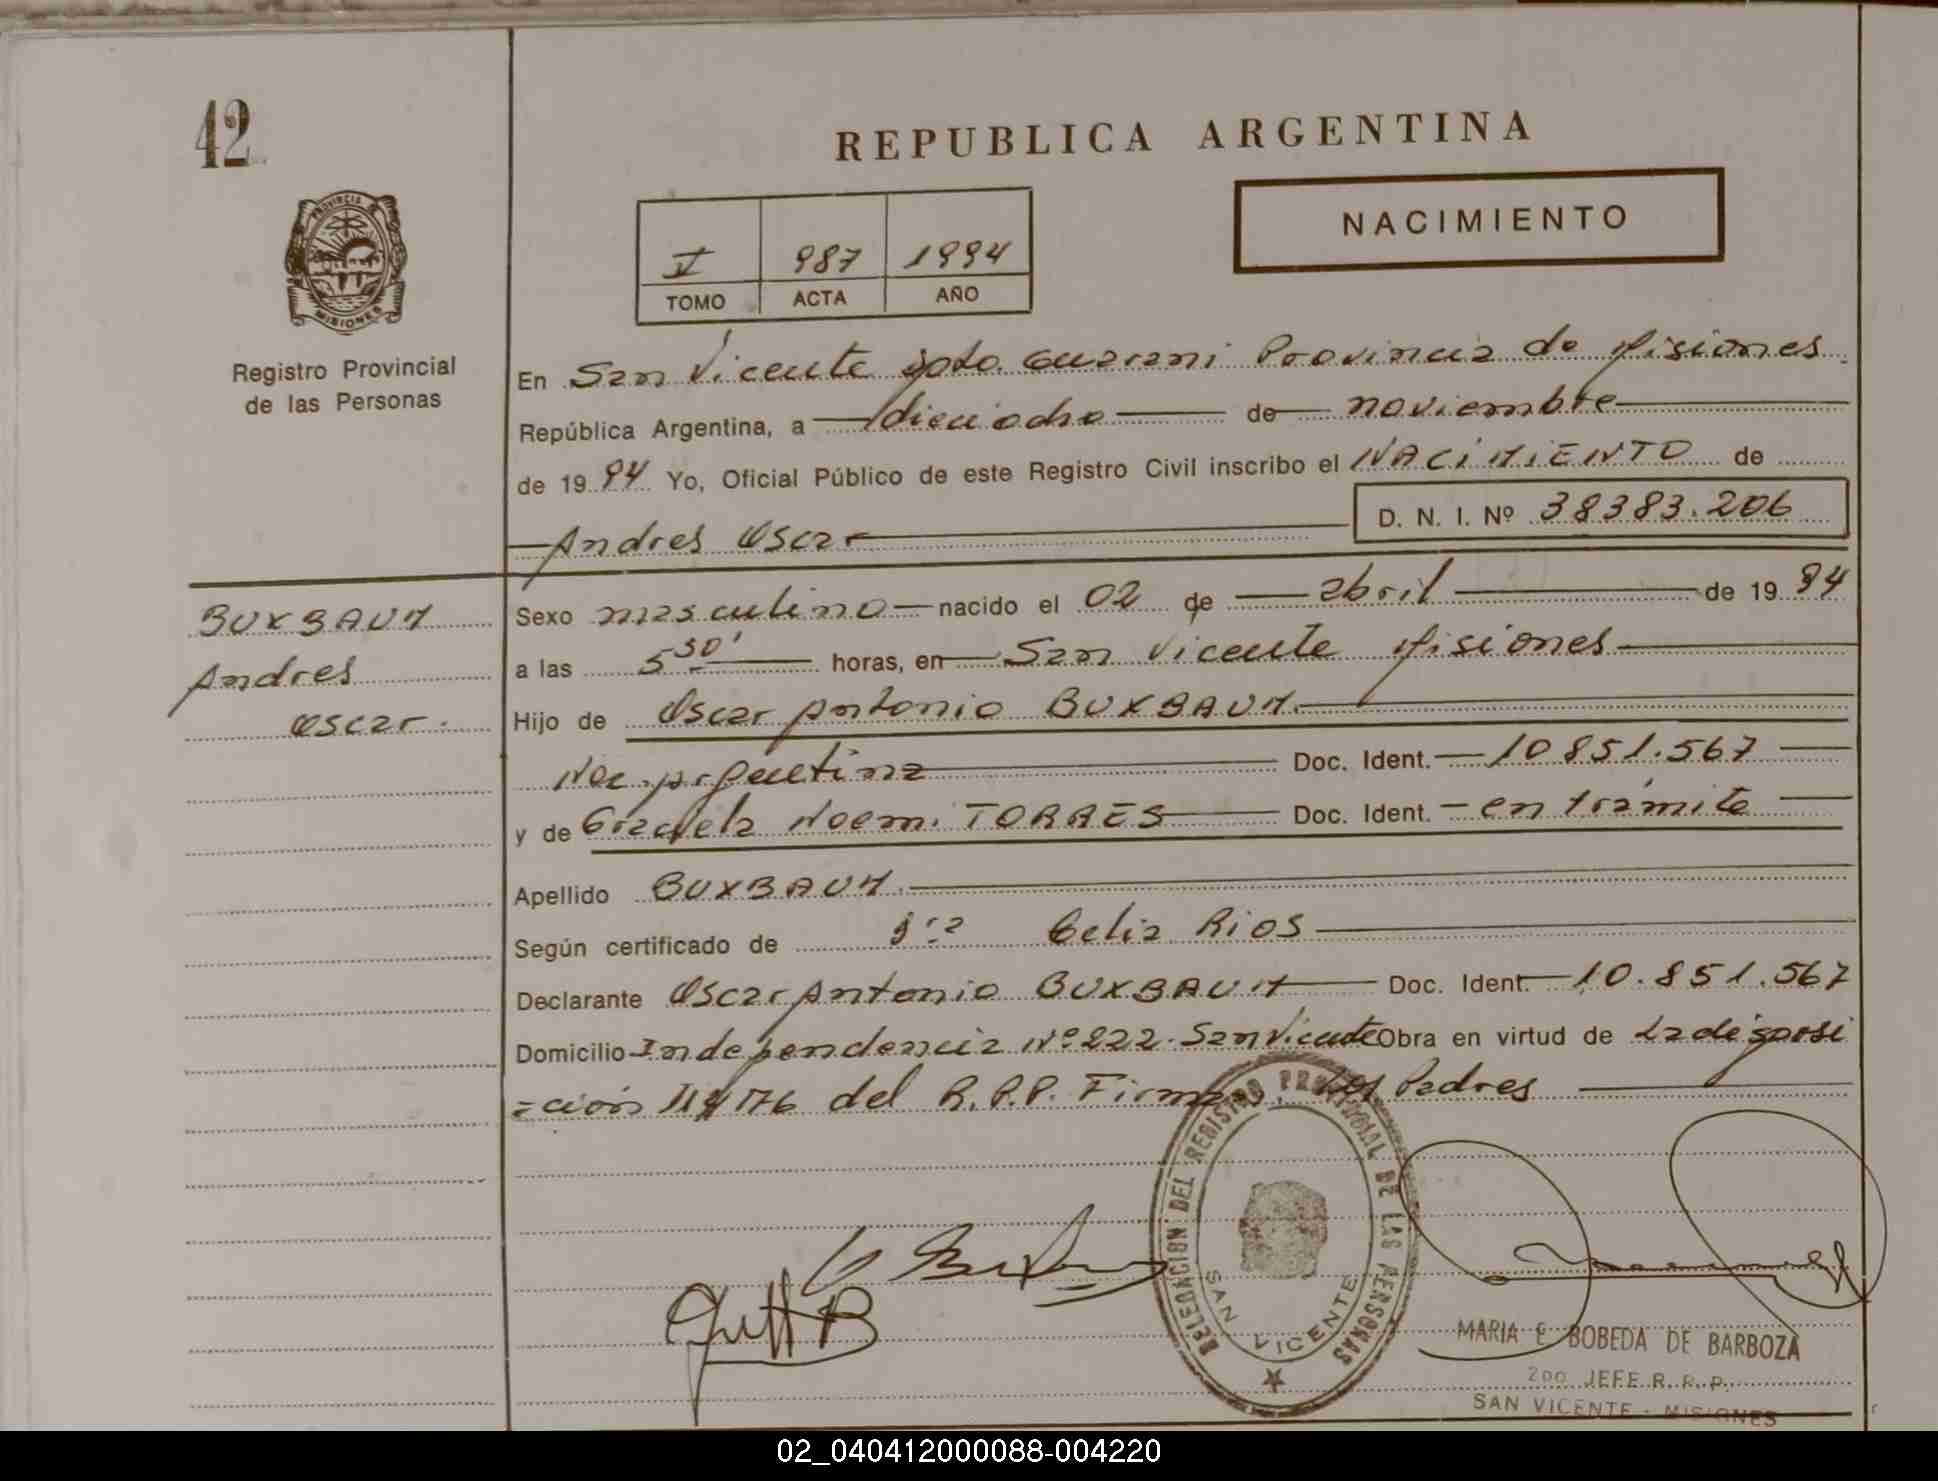 42
REPUBLICA ARGENTINA
PROVINCIA
MISIONES
Registro Provincial
de las Personas
V 987 1994
TOMO ACTA AÑO
NACIMIENTO
En San Vicente Dpto. Guarani Provincia de Misiones
República Argentina, a dieciocho de noviembre
de 1994 Yo, Oficial Público de este Registro Civil inscribo el NACIMIENTO de
Andres Oscar D. N. I. Nº 38383.206
BUXBAUM
Andres
Oscar.
Sexo masculino nacido el 02 de abril de 1994
a las 5 30' horas, en San Vicente Misiones
Hijo de Oscar Antonio BUXBAUM.
Nac. Argentina Doc. Ident. 10851.567
y de Graciela Noemi TORRES Doc. Ident. en trámite
Apellido BUXBAUM.
Según certificado de Sra Celia Rios
Declarante Oscar Antonio BUXBAUM Doc. Ident. 10.851.567
Domicilio Independencia Nº 222. San Vicente Obra en virtud de La disposi
=ción 176 del R.P.P. Firman: los Padres
DELEGACION DEL REGISTRO PROVINCIAL DE LAS PERSONAS
SAN VICENTE
MARIA E BOBEDA DE BARBOZA
2DO JEFE R. R. P.
SAN VICENTE - MISIONES
02_040412000088-004220